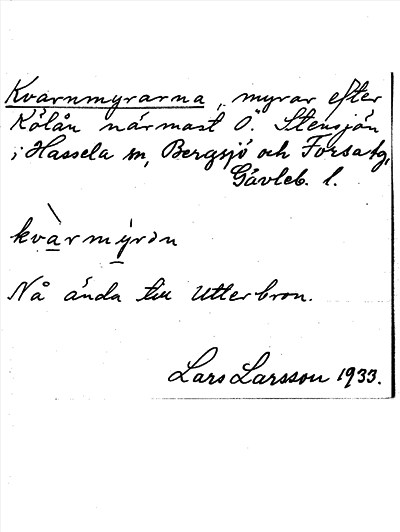 Kvarnmyrarna, myrar efter
Kölån närmast Ö. Stensjön
i Hassela sn, Bergsjö och Forsa tg,
Gävleb. l.
kvàrmýrən
Nå ända till Utterbron.
Lars Larsson 1933.